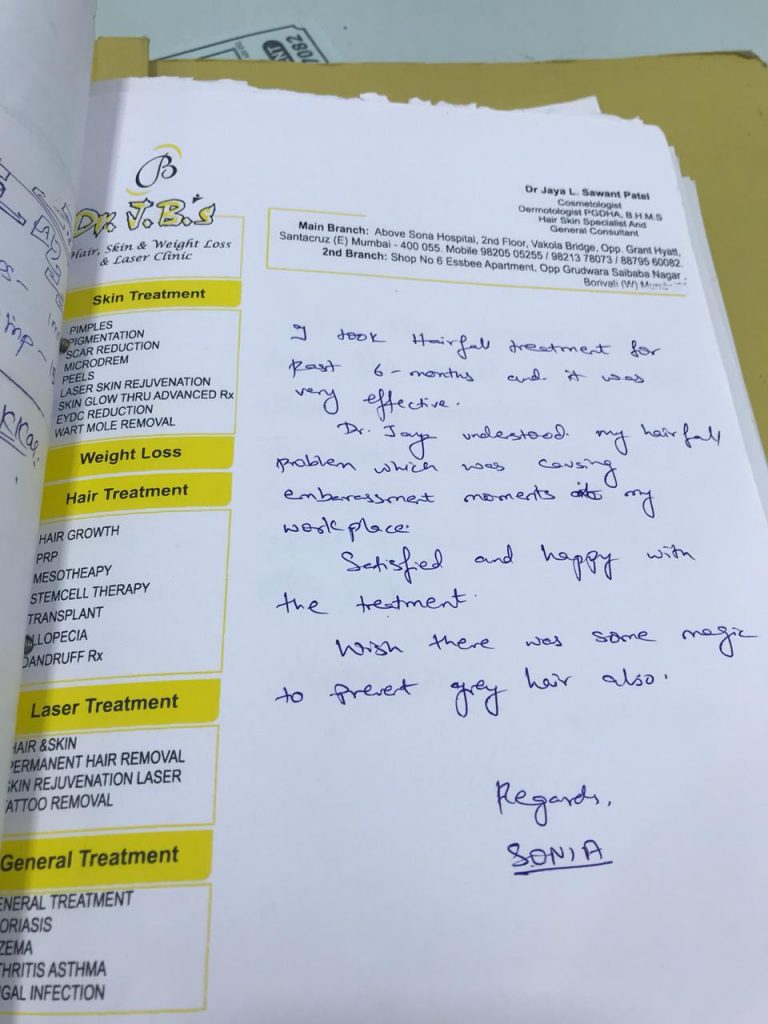 7082
Dr. J.B.'s
Hair, Skin & Weight Loss
& Laser Clinic
Dr Jaya L. Sawant Patel
Cosmetologist
Dermotologist PGDHA, B.H.M.S
Hair Skin Specialist And
General Consultant
Main Branch: Above Sona Hospital, 2nd Floor, Vakola Bridge, Opp. Grant Hyatt,
Santacruz (E) Mumbai - 400 055. Mobile 98205 05255 / 98213 78073 / 88795 60082.
2nd Branch: Shop No 6 Essbee Apartment, Opp Grudwara Saibaba Nagar,
Borivali (W)
Skin Treatment
PIMPLES
PIGMENTATION
SCAR REDUCTION
MICRODREM
PEELS
LASER SKIN REJUVENATION
SKIN GLOW THRU ADVANCED Rx
EYDC REDUCTION
WART MOLE REMOVAL
Weight Loss
Hair Treatment
HAIR GROWTH
PRP
MESOTHEAPY
STEMCELL THERAPY
TRANSPLANT
LLOPECIA
DANDRUFF Rx
Laser Treatment
HAIR &SKIN
PERMANENT HAIR REMOVAL
SKIN REJUVENATION LASER
ATTOO REMOVAL
General Treatment
ENERAL TREATMENT
ORIASIS
ZEMA
THRITIS ASTHMA
GAL INFECTION
I took Hairfall treatment for
past 6-months and it was
very effective.
Dr. Jaya understood my hairfall
problem which was causing
embarassment moments at my
workplace.
Satisfied and happy with
the treatment.
Wish there was some magic
to prevent grey hair also.
Regards,
SONIA